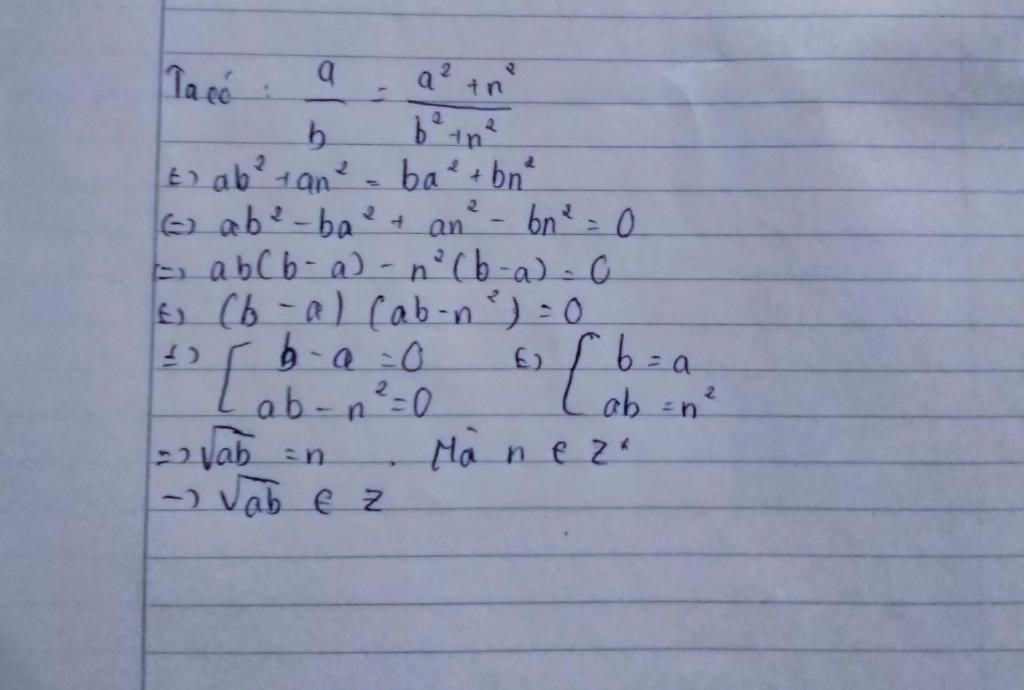 Ta có : a/b = (a² + n²)/(b² + n²)
(=) ab² + an² = ba² + bn²
(=) ab² - ba² + an² - bn² = 0
(=) ab(b - a) - n²(b - a) = 0
(=) (b - a) (ab - n²) = 0
(=) [ b - a = 0 (=) [ b = a
ab - n² = 0 ab = n²
=) √ab = n . Mà n ∈ Z*
=) √ab ∈ Z